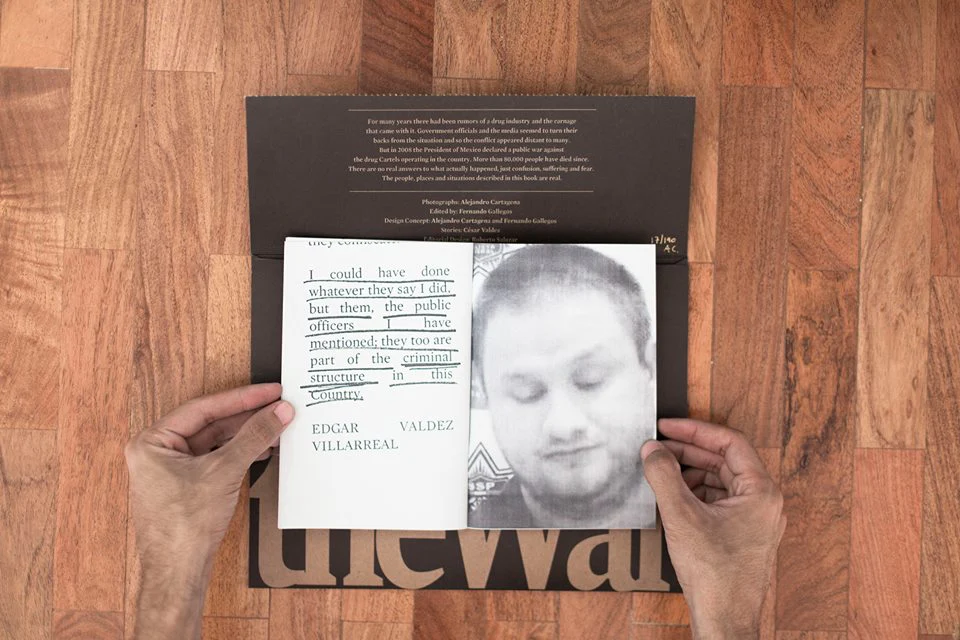 For many years there had been rumors of a drug industry and the carnage
that came with it. Government officials and the media seemed to turn their
backs from the situation and so the conflict appeared distant to many.
But in 2008 the President of Mexico declared a public war against
the drug Cartels operating in the country. More than 80,000 people have died since.
There are no real answers to what actually happened, just confusion, suffering and fear.
The people, places and situations described in this book are real.
Photographs: Alejandro Cartagena
Edited by: Fernando Gallegos
Design Concept: Alejandro Cartagena and Fernando Gallegos
Stories: César Valdez
Editorial Design: Roberto Salazar
17/190
A.C.
they
I could have done
whatever they say I did,
but them, the public
officers I have
mentioned; they too are
part of the criminal
structure in this
Country.
EDGAR VALDEZ
VILLARREAL
SSP
the war